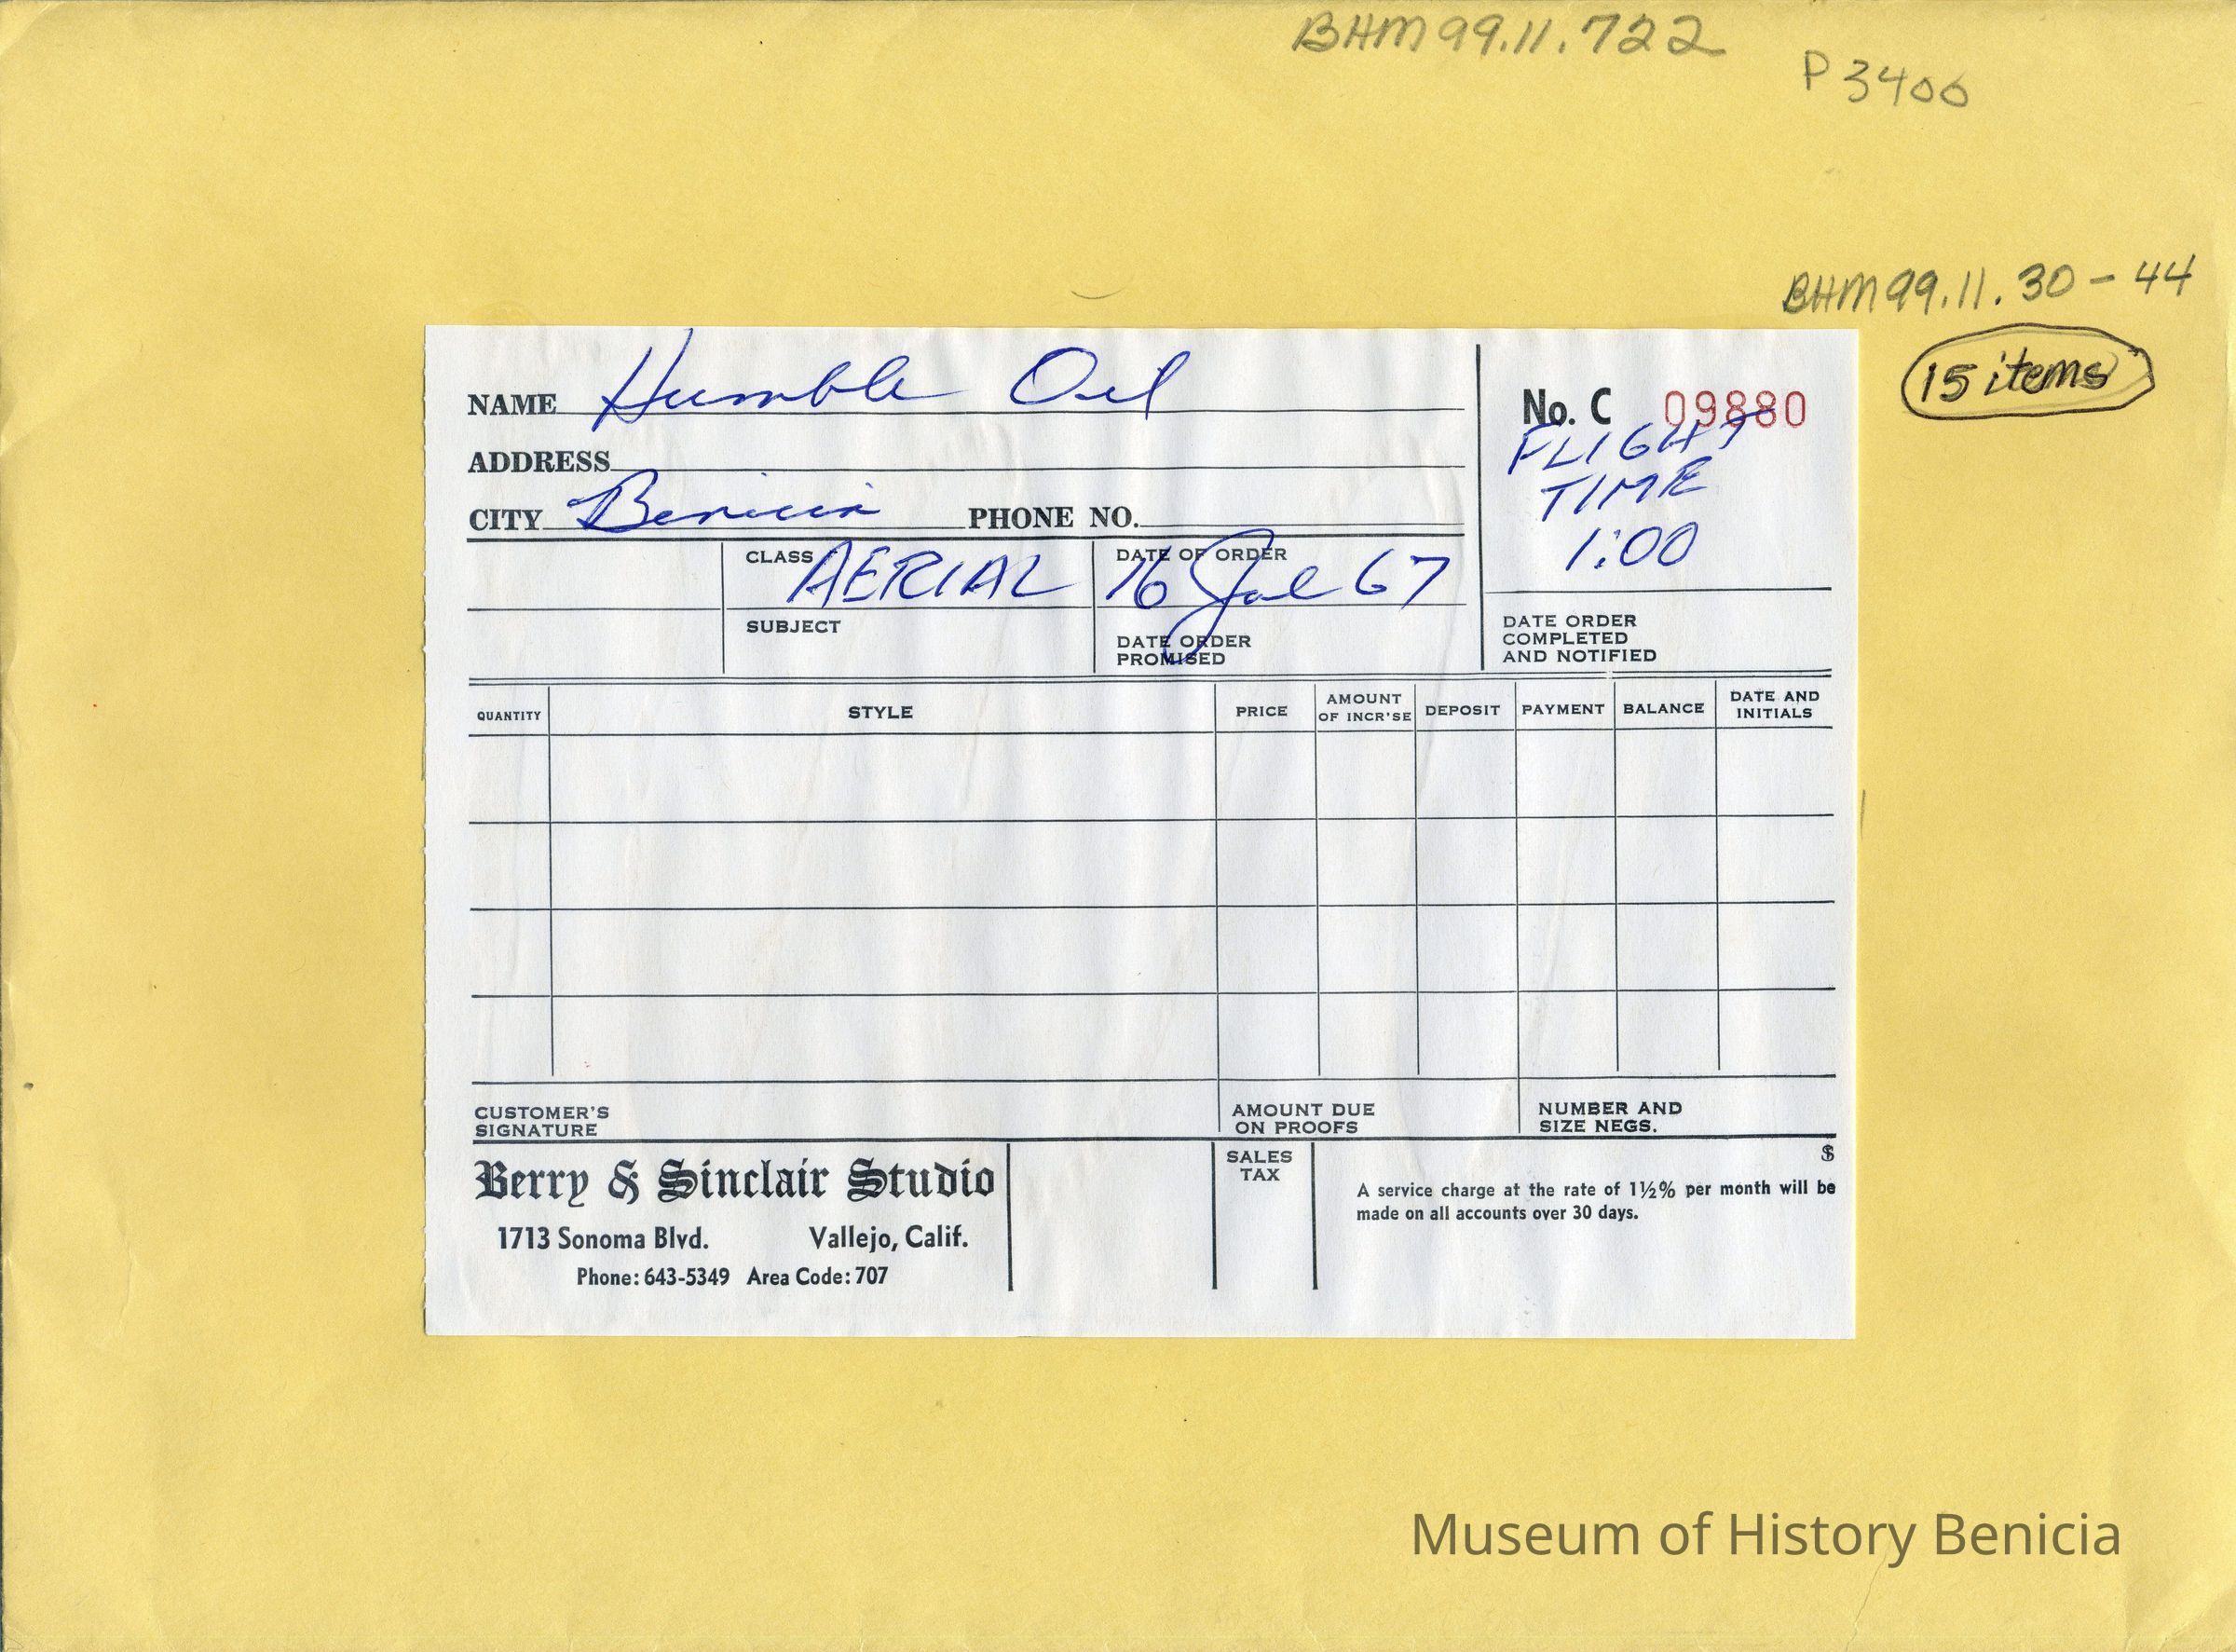 BHM 99.11.722
P 3400
BHM 99.11.30-44
15 items
NAME Humble Oil
No. C 09880
ADDRESS
FLIGHT
TIME
1:00
CITY Benicia PHONE NO.
CLASS AERIAL
DATE OF ORDER 16 Jul 67
SUBJECT
DATE ORDER
PROMISED
DATE ORDER
COMPLETED
AND NOTIFIED
QUANTITY STYLE PRICE AMOUNT OF INCR'SE DEPOSIT PAYMENT BALANCE DATE AND INITIALS
CUSTOMER'S
SIGNATURE
AMOUNT DUE
ON PROOFS
NUMBER AND
SIZE NEGS.
Berry & Sinclair Studio
1713 Sonoma Blvd. Vallejo, Calif.
Phone: 643-5349 Area Code: 707
SALES
TAX
$
A service charge at the rate of 1½% per month will be
made on all accounts over 30 days.
Museum of History Benicia